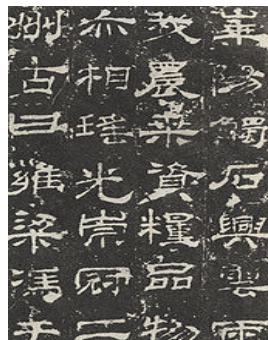 崋陽觸石興雲雨
我農桒資糧品物
亦相瑤光崇冠二
州古曰雍梁馮于